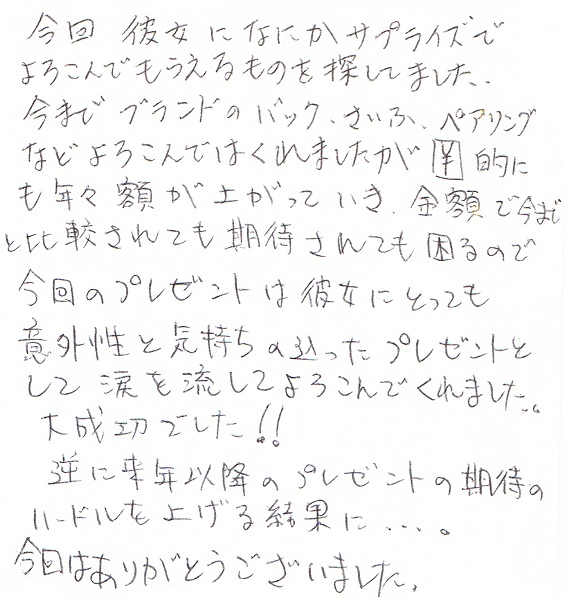 今回 彼女になにかサプライズで
よろこんでもうえるものを探してました.
今まで ブランドのバック、さいふ、ペアリング
などよろこんではくれましたが ¥ 的に
も年々額が上がっていき、金額で今まで
と比較されても期待されても困るので
今回のプレゼントは彼女にとっても
意外性と気持ちの込ったプレゼントと
して 涙を流してよろこんでくれました。
大成功でした!!
逆に来年以降のプレゼントの期待の
ハードルを上げる結果に・・・。
今回はありがとうございました.